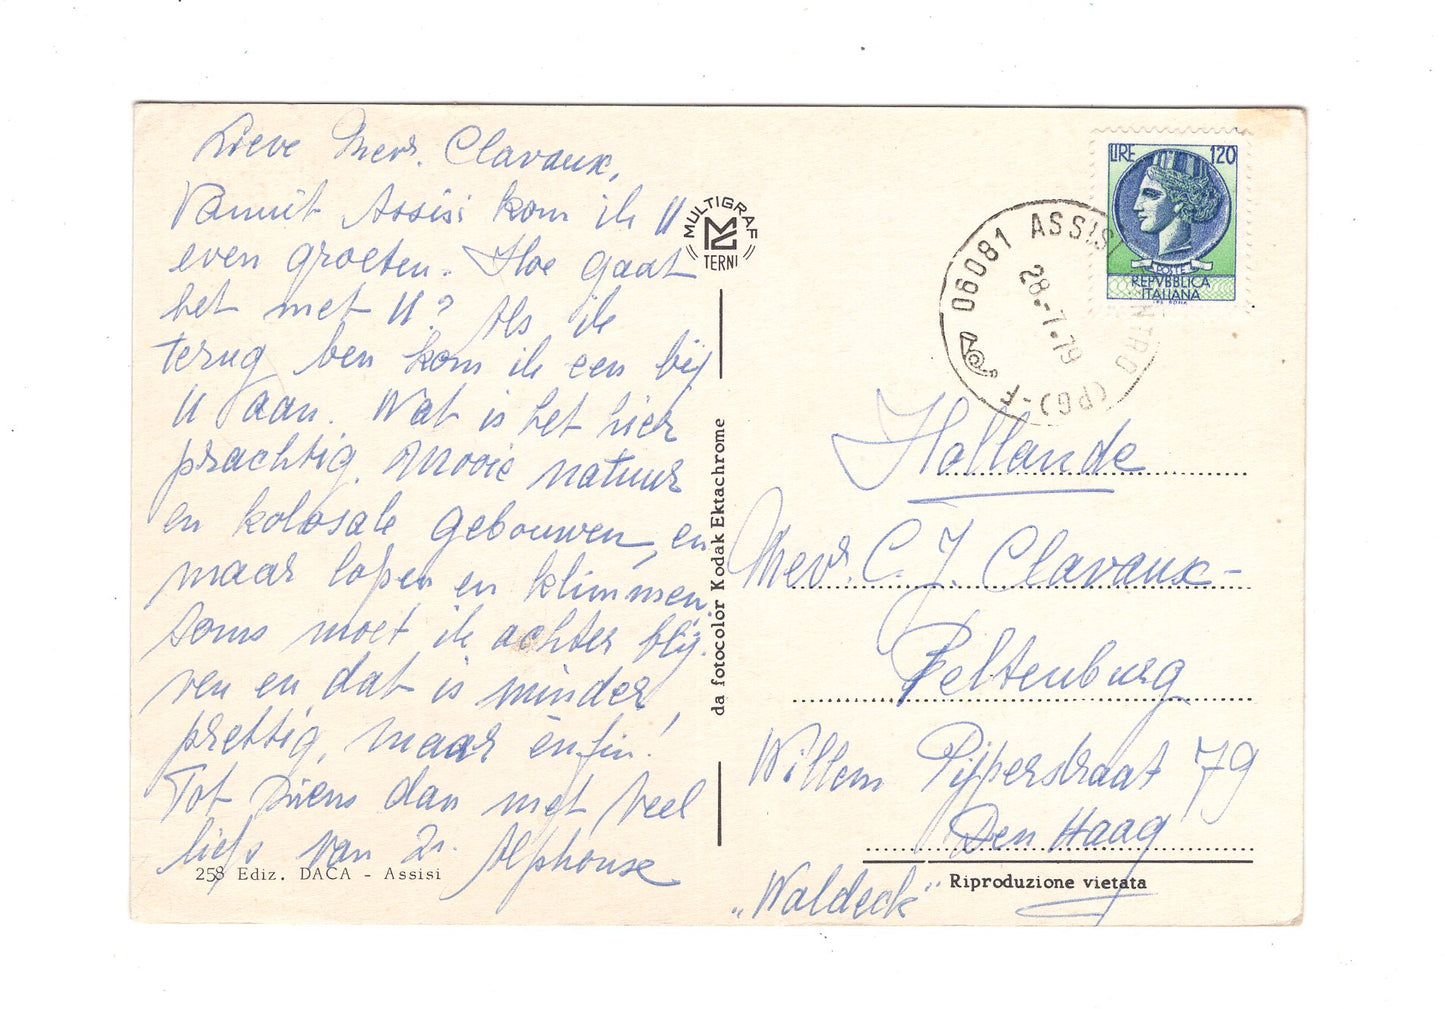 Lieve Mevr. Clavaux,
Vanuit Assisi kom ik U
even groeten. Hoe gaat
het met U? Als ik
terug ben kom ik een bij
U aan. Wat is het hier
prachtig. Mooie natuur
en kolosale gebouwen, en
maar lopen en klimmen.
Soms moet ik achter blij-
ven en dat is minder
prettig, maar enfin!
Tot ziens dan met veel
liefs van Zr. Alphonse
258 Ediz. DACA - Assisi
MULTIGRAF
TERNI
da fotocolor Kodak Ektachrome
LIRE 120
POSTE
REPVBBLICA
ITALIANA
06081 ASSISI CENTRO (PG) - F
28.-7.79
Hollande
Mevr. C. J. Clavaux-
Peltenburg
Willem Pijperstraat 79
Den Haag
Riproduzione vietata
"Waldeck"